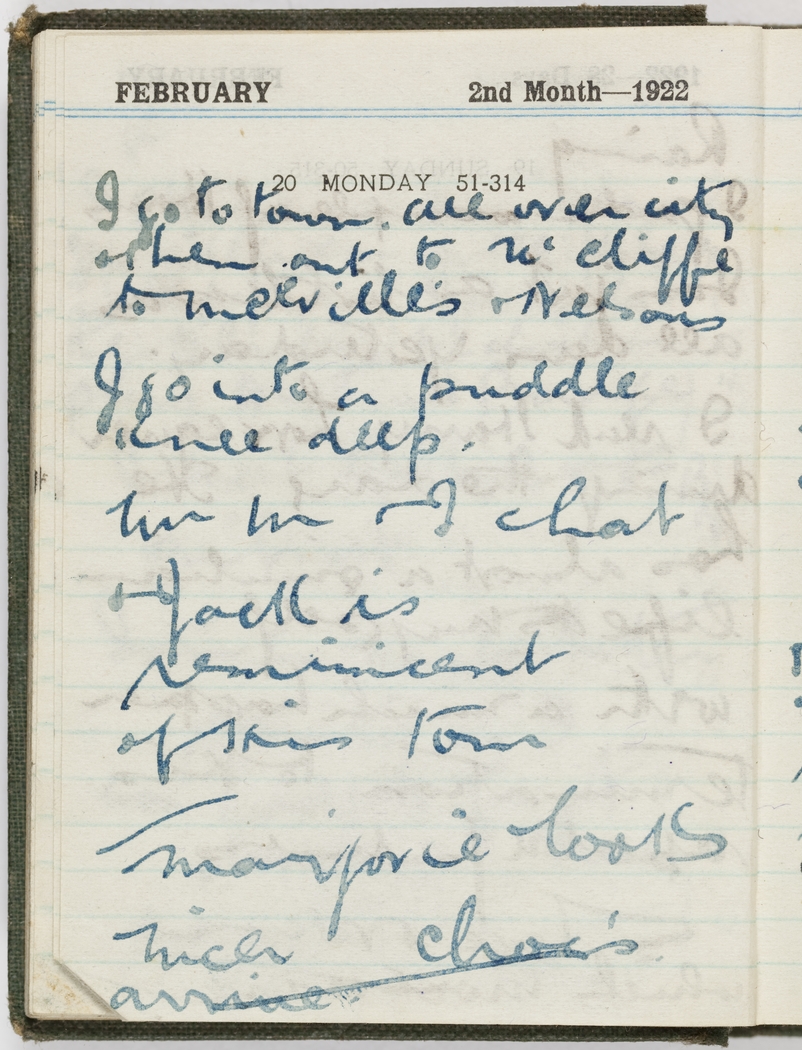 FEBRUARY 2nd Month—1922
20 MONDAY 51-314
I go to town. all over city
& then out to N'cliffe
to Melvilles & Nelsons
I go into a puddle
knee deep.
Mr M & I chat
& Jack is
reminicent
of his tour
Marjorie looks
nicer
arrive